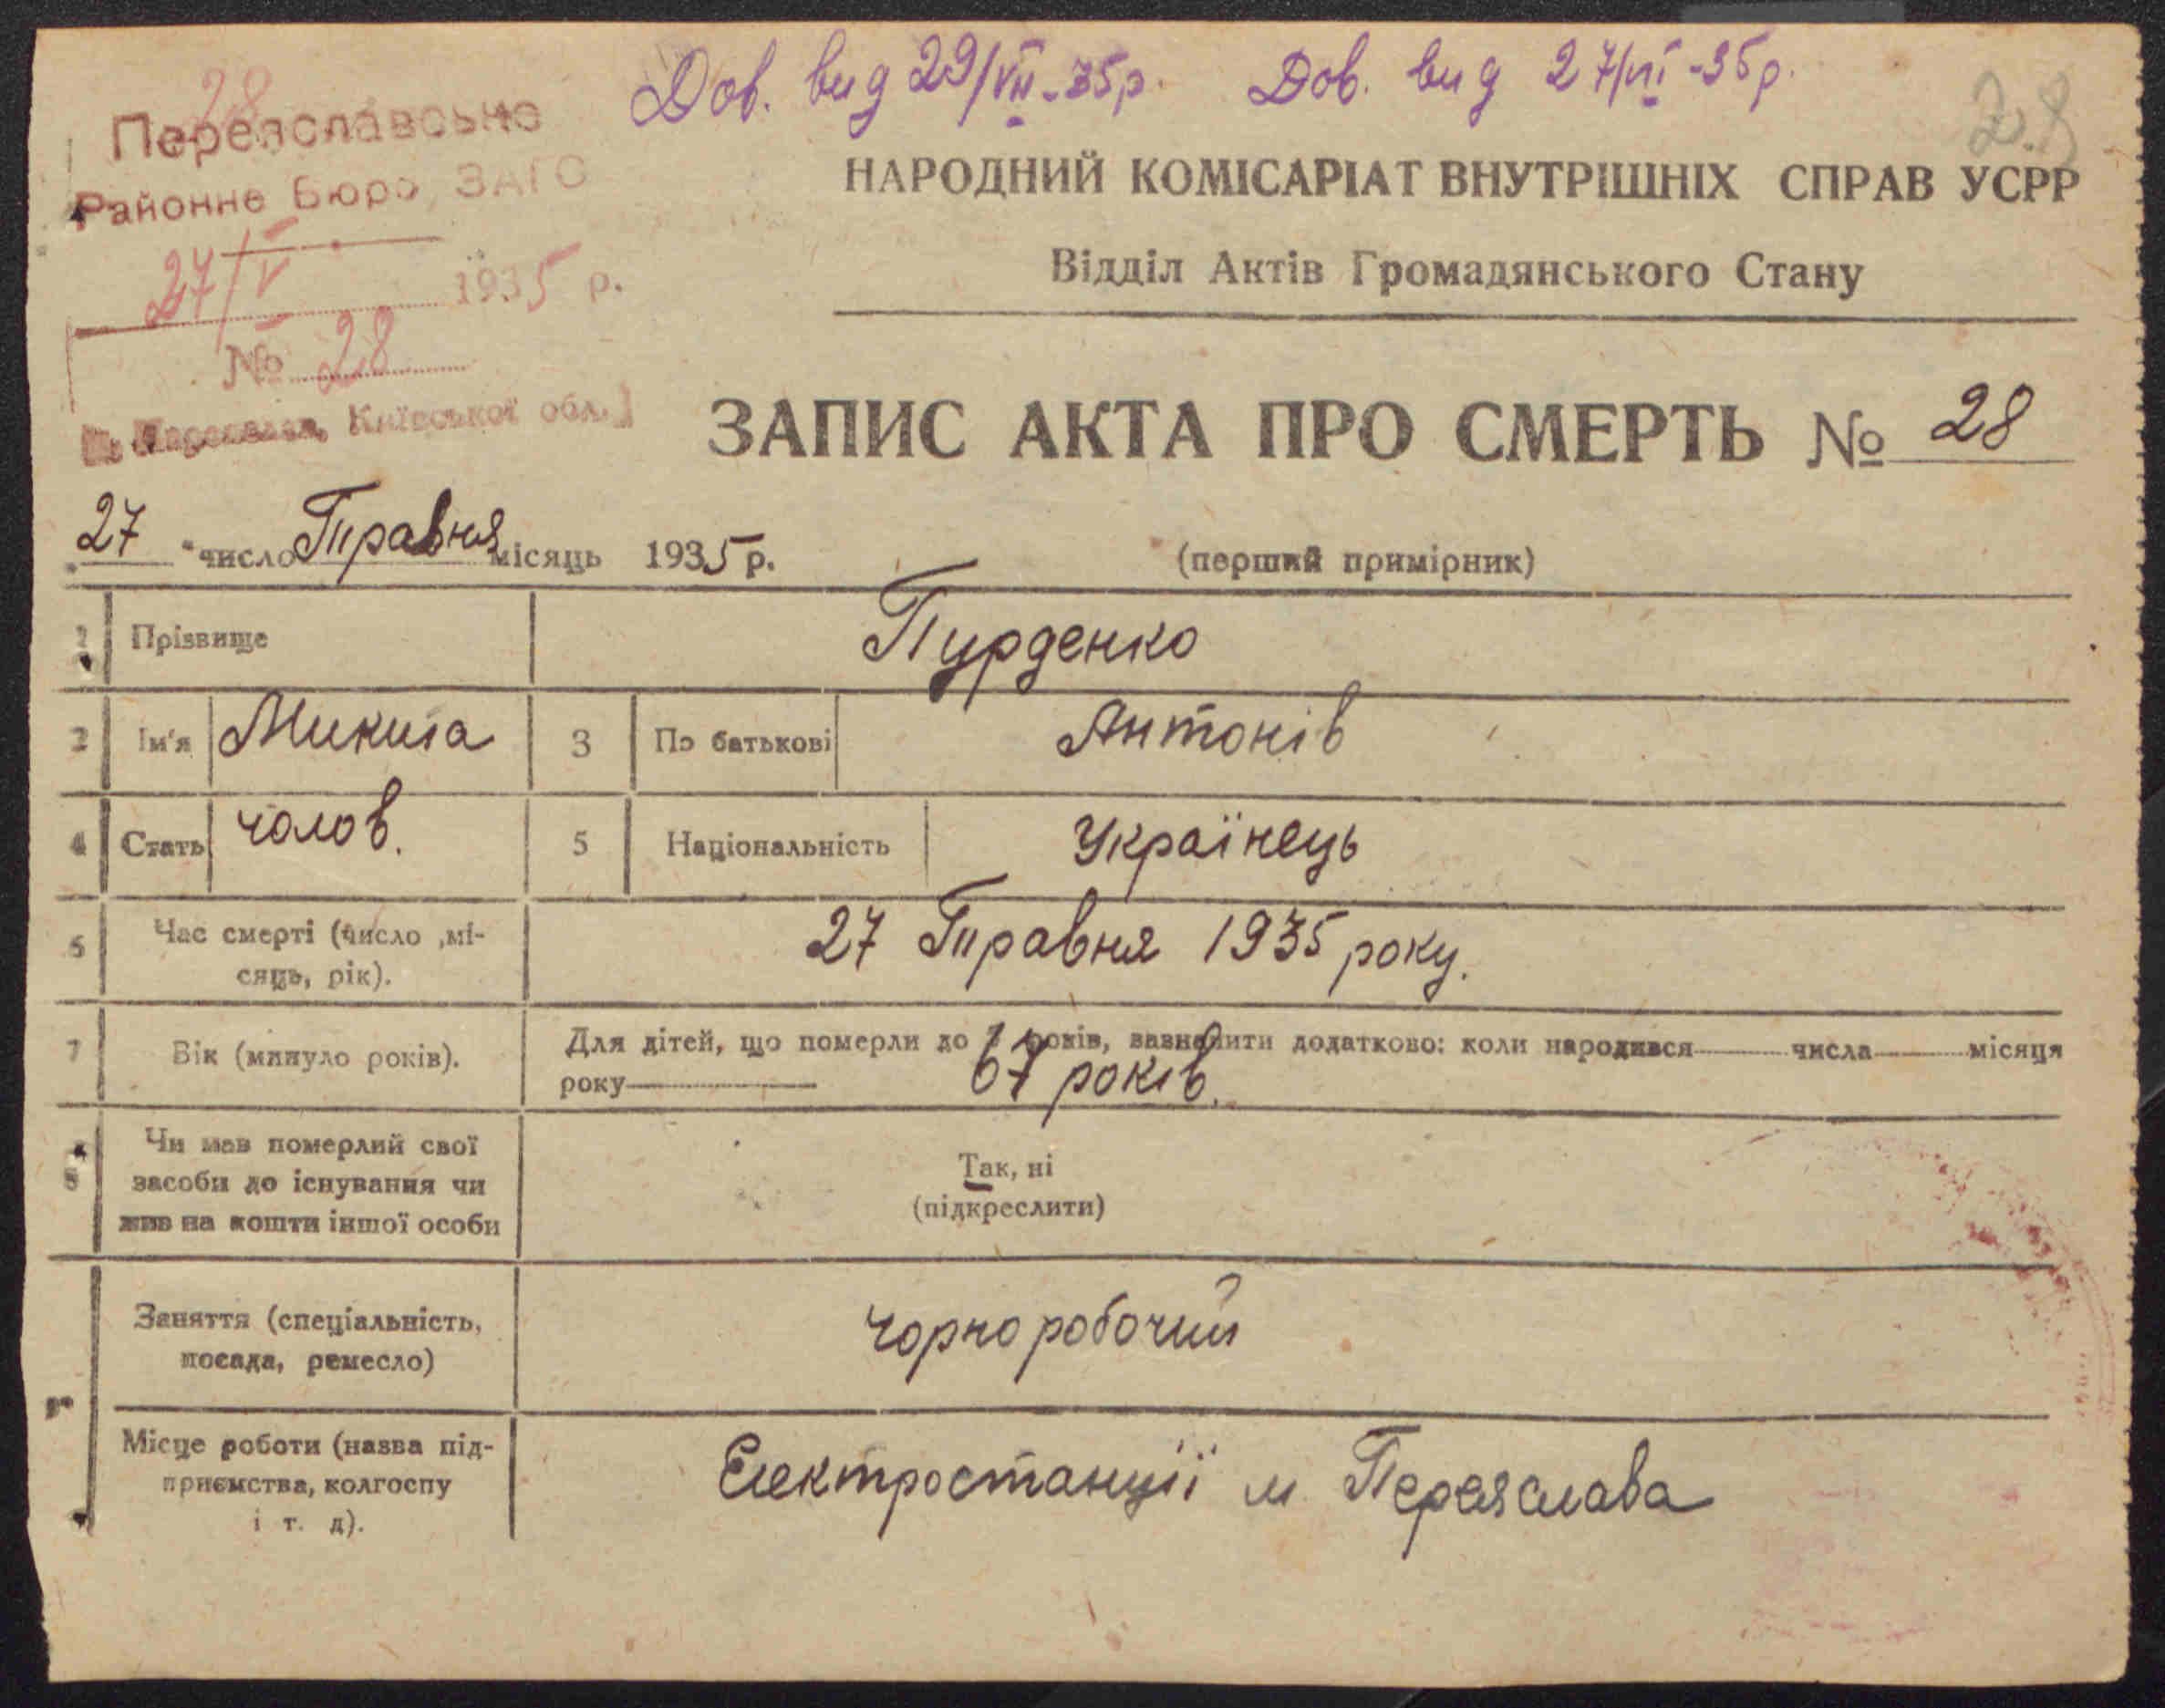 Дов. вид 29/VII-35р. Дов. вид 27/VI-35р.
28
28
Переяславське
Районне Бюро ЗАГС
27/V 1935 р.
№ 28
м. Переяслав, Київської обл.
НАРОДНИЙ КОМІСАРІАТ ВНУТРІШНІХ СПРАВ УСРР
Відділ Актів Громадянського Стану
ЗАПИС АКТА ПРО СМЕРТЬ № 28
"27" число Травня місяць 1935 р. (перший примірник)
1 Прізвище Пурденко
2 Ім'я Микита 3 По батькові Антонів
4 Стать чолов. 5 Національність Українець
6 Час смерті (число ,мі-
сяць, рік). 27 Травня 1935 року.
7 Вік (минуло років). Для дітей, що померли до років, зазначити додатково: коли народився числа місяця
року 67 років.
8 Чи мав померлий свої
засоби до існування чи
жив на кошти іншої особи
Так, ні
(підкреслити)
Заняття (спеціальність,
посада, ремесло) чорноробочий
Місце роботи (назва під-
приємства, колгоспу
і т. д). Електростанції м Переяслава